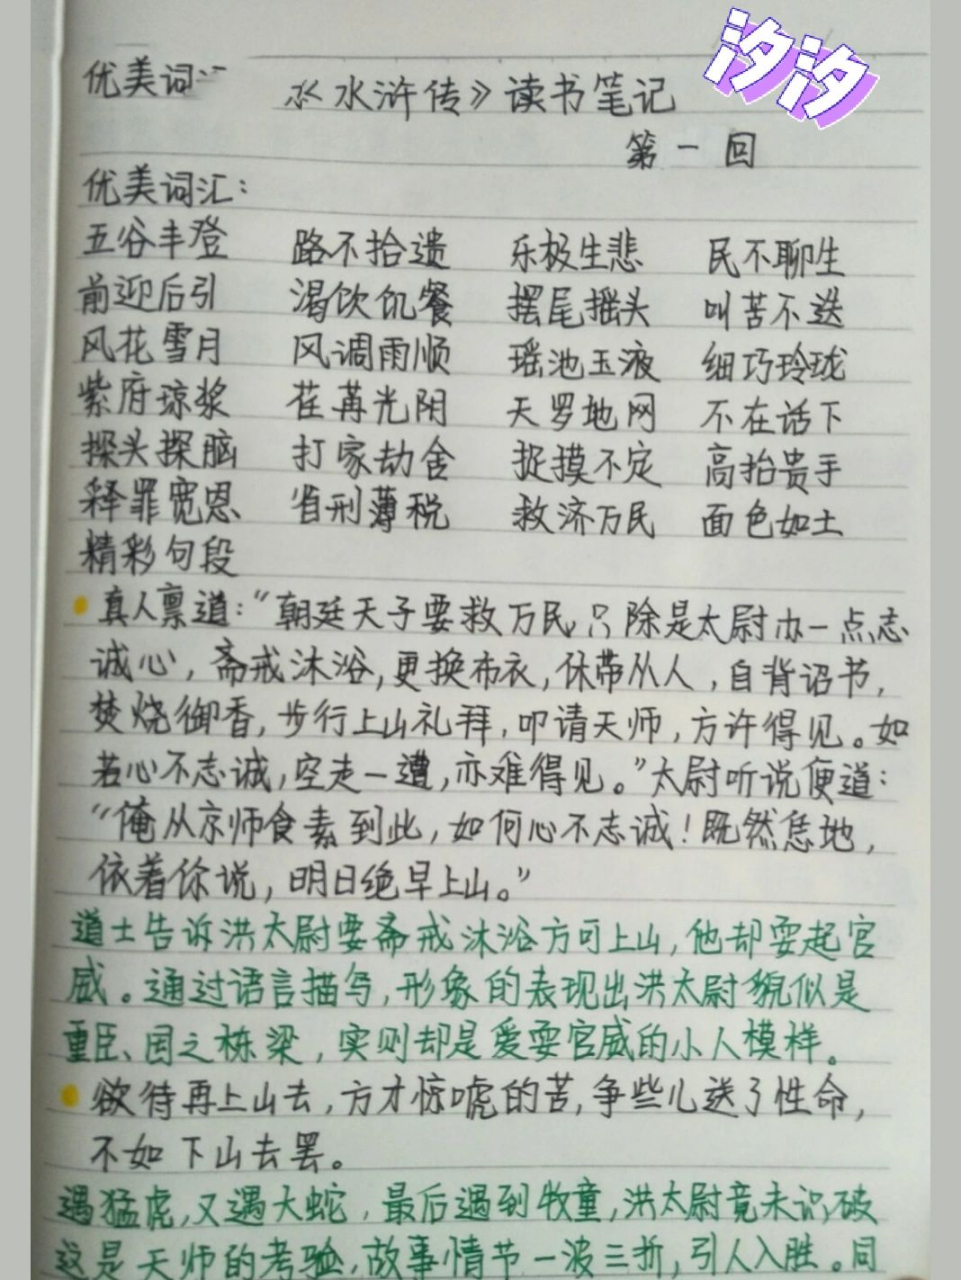 汐汐
优美词
《水浒传》读书笔记
第一回
优美词汇:
五谷丰登 路不拾遗 乐极生悲 民不聊生
前迎后引 渴饮饥餐 摆尾摇头 叫苦不迭
风花雪月 风调雨顺 瑶池玉液 细巧玲珑
紫府琼浆 荏苒光阴 天罗地网 不在话下
探头探脑 打家劫舍 捉摸不定 高抬贵手
释罪宽恩 省刑薄税 救济万民 面色如土
精彩句段
真人禀道:“朝廷天子要救万民,只除是太尉办一点志
诚心,斋戒沐浴,更换布衣,休带从人,自背诏书,
焚烧御香,步行上山礼拜,叩请天师,方许得见。如
若心不志诚,空走一遭,亦难得见。”太尉听说便道:
“俺从京师食素到此,如何心不志诚!既然恁地,
依着你说,明日绝早上山。”
道士告诉洪太尉要斋戒沐浴方可上山,他却耍起官
威。通过语言描写,形象的表现出洪太尉貌似是
重臣、国之栋梁,实则却是爱耍官威的小人模样。
欲待再上山去,方才惊唬的苦,争些儿送了性命,
不如下山去罢。
遇猛虎,又遇大蛇,最后遇到牧童,洪太尉竟未识破
这是天师的考验,故事情节一波三折,引人入胜。同